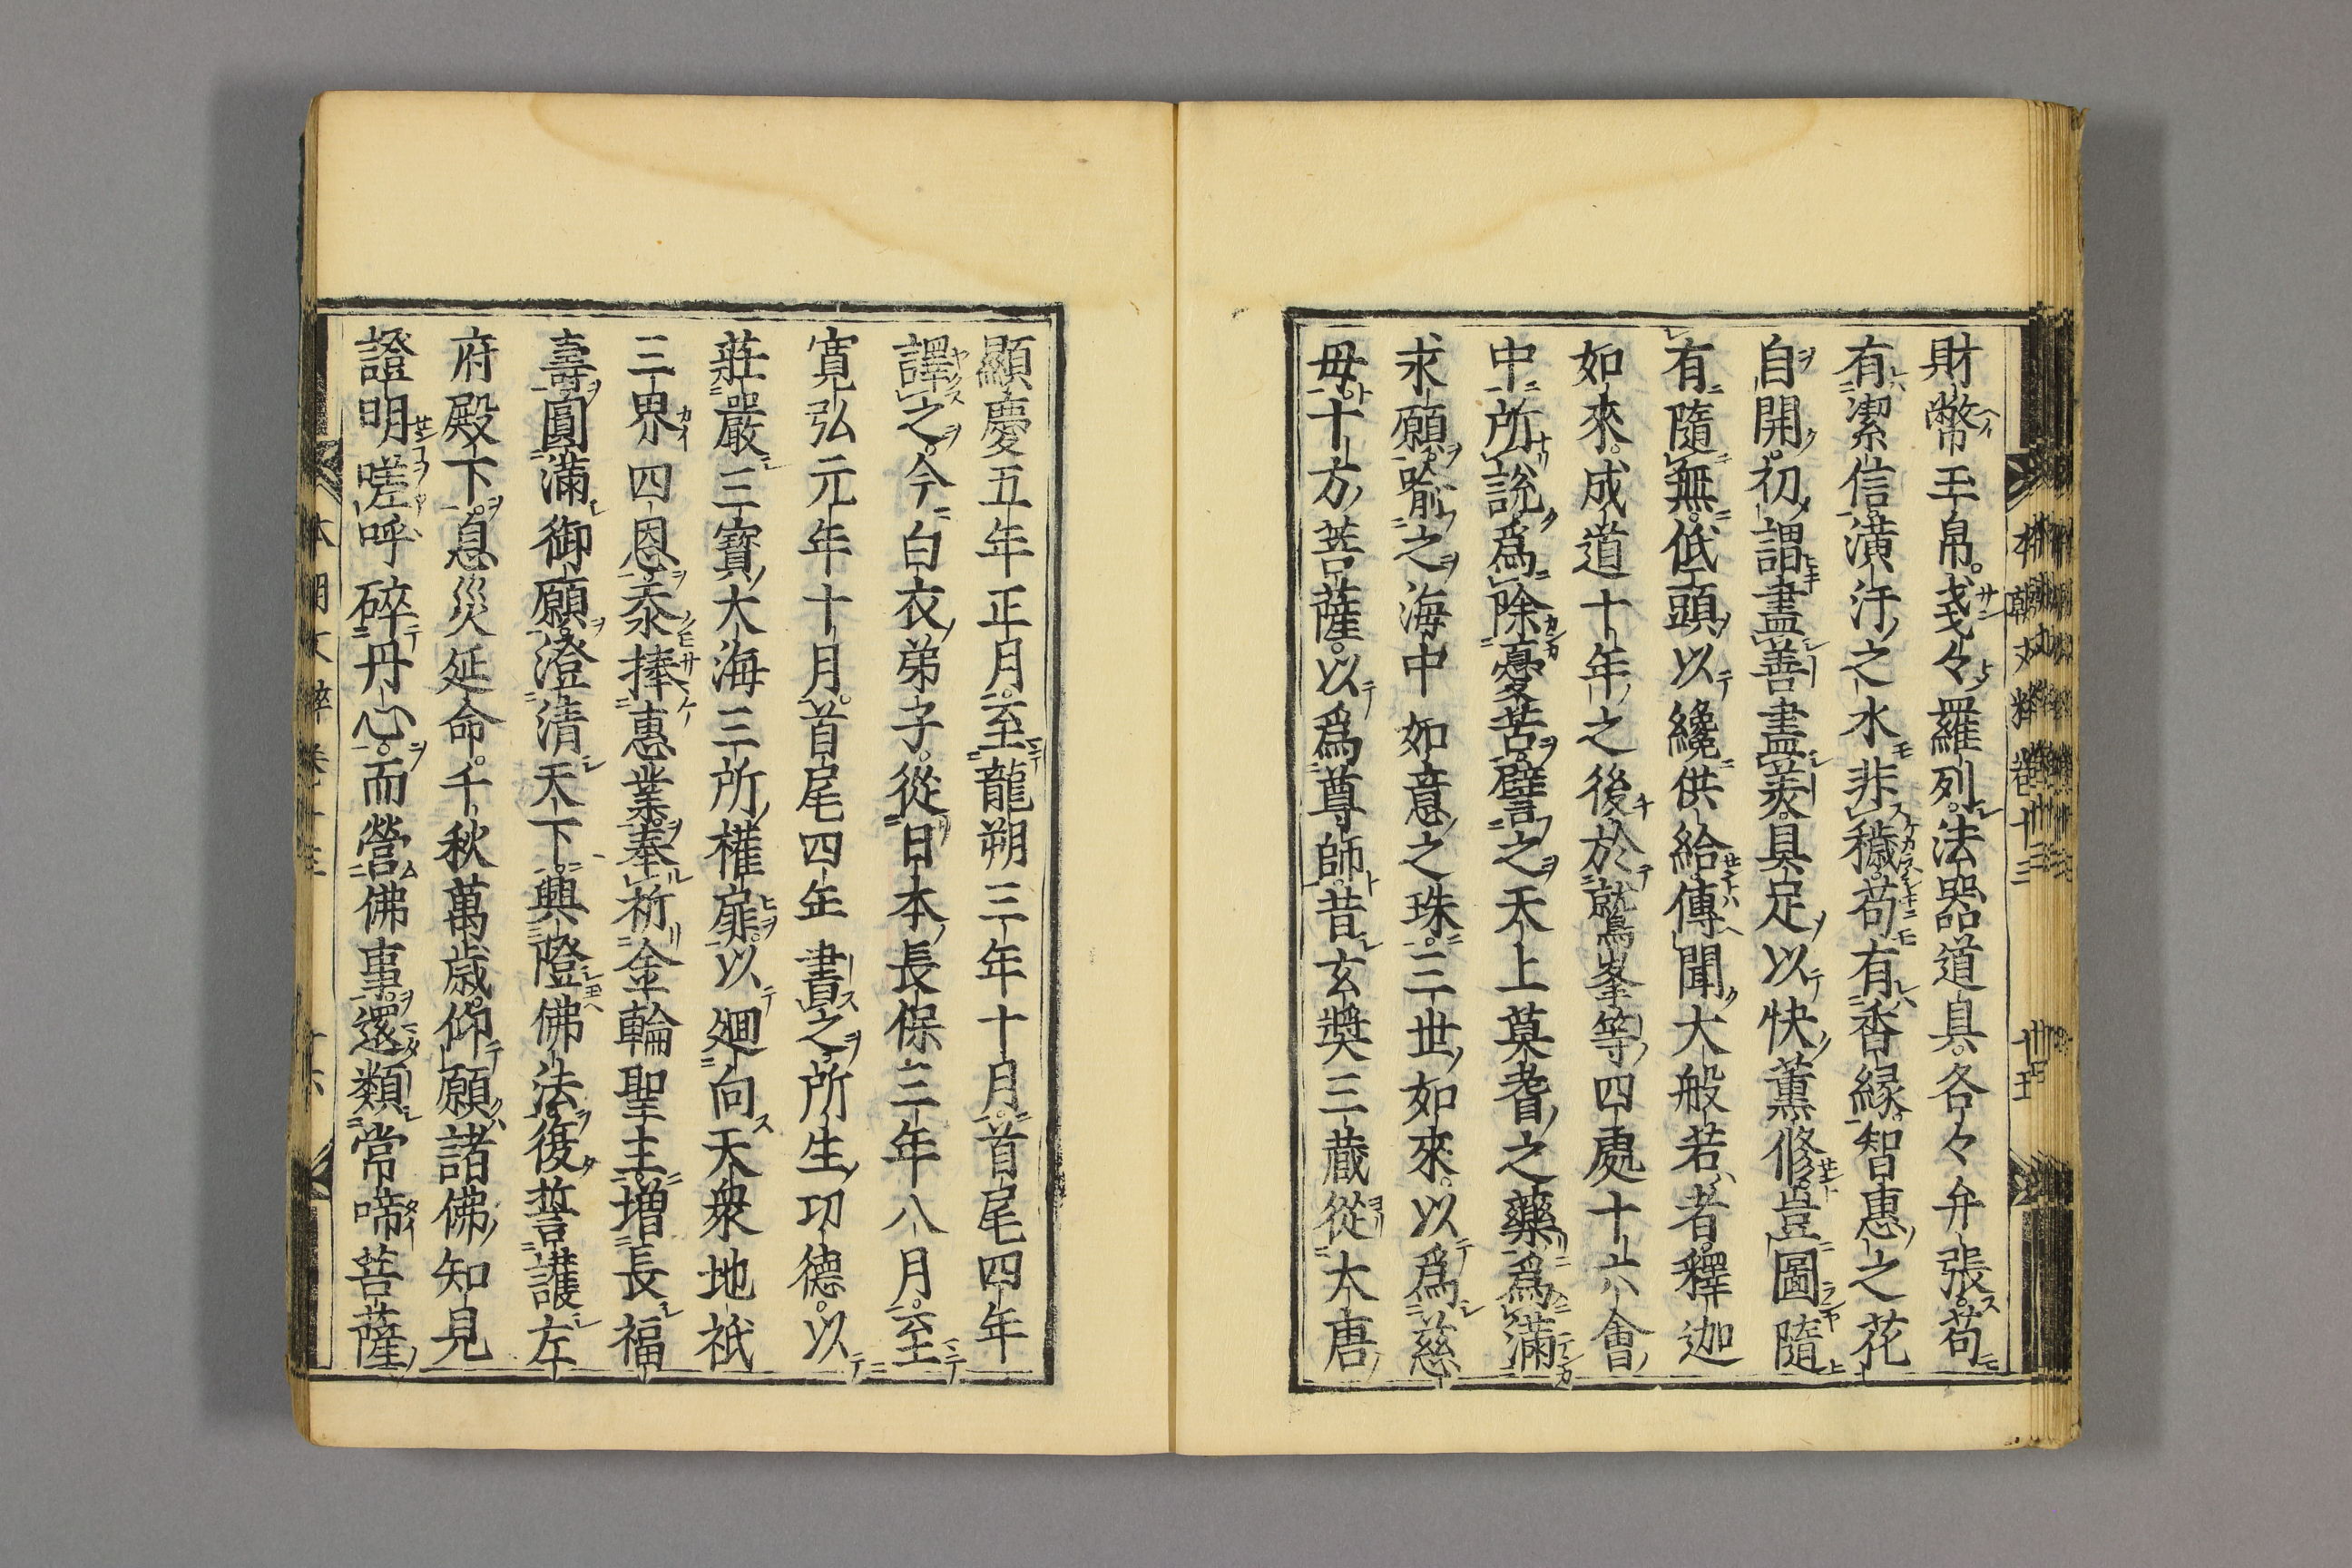 財幣玉帛。戔々羅列。法器道具。各々弁張。苟
有潔信。潢汙之水非穢。苟有香縁。智惠之花
自開。初謂盡善盡美。具足以快薫修。豈圖隨
有隨無。低頭以纔供給。傳聞大般若者。釋迦
如來。成道十年之後。於鷲峯等四處十六會
中。所說。爲除憂苦。譬之天上莫耆之藥。爲滿
求願。喩之海中如意之珠。三世如來。以爲慈
母。十方菩薩。以爲尊師。昔玄奘三藏從大唐
顯慶五年正月。至龍朔三年十月。首尾四年
譯之。今白衣弟子。從日本長保三年八月。至
寛弘元年十月。首尾四年書之。所生功德。以
莊嚴三寶。大海三所權扉。以廻向天衆地祇
三界四恩。泰捧惠業。奉祈金輪聖主。增長福
壽。圓滿御願。澄清天下。興隆佛法。復誓護左
府殿下。息災延命。千秋萬歲。仰願諸佛知見
證明。嗟呼碎丹心。而營佛事。還類常啼菩薩
本朝文粹卷十三